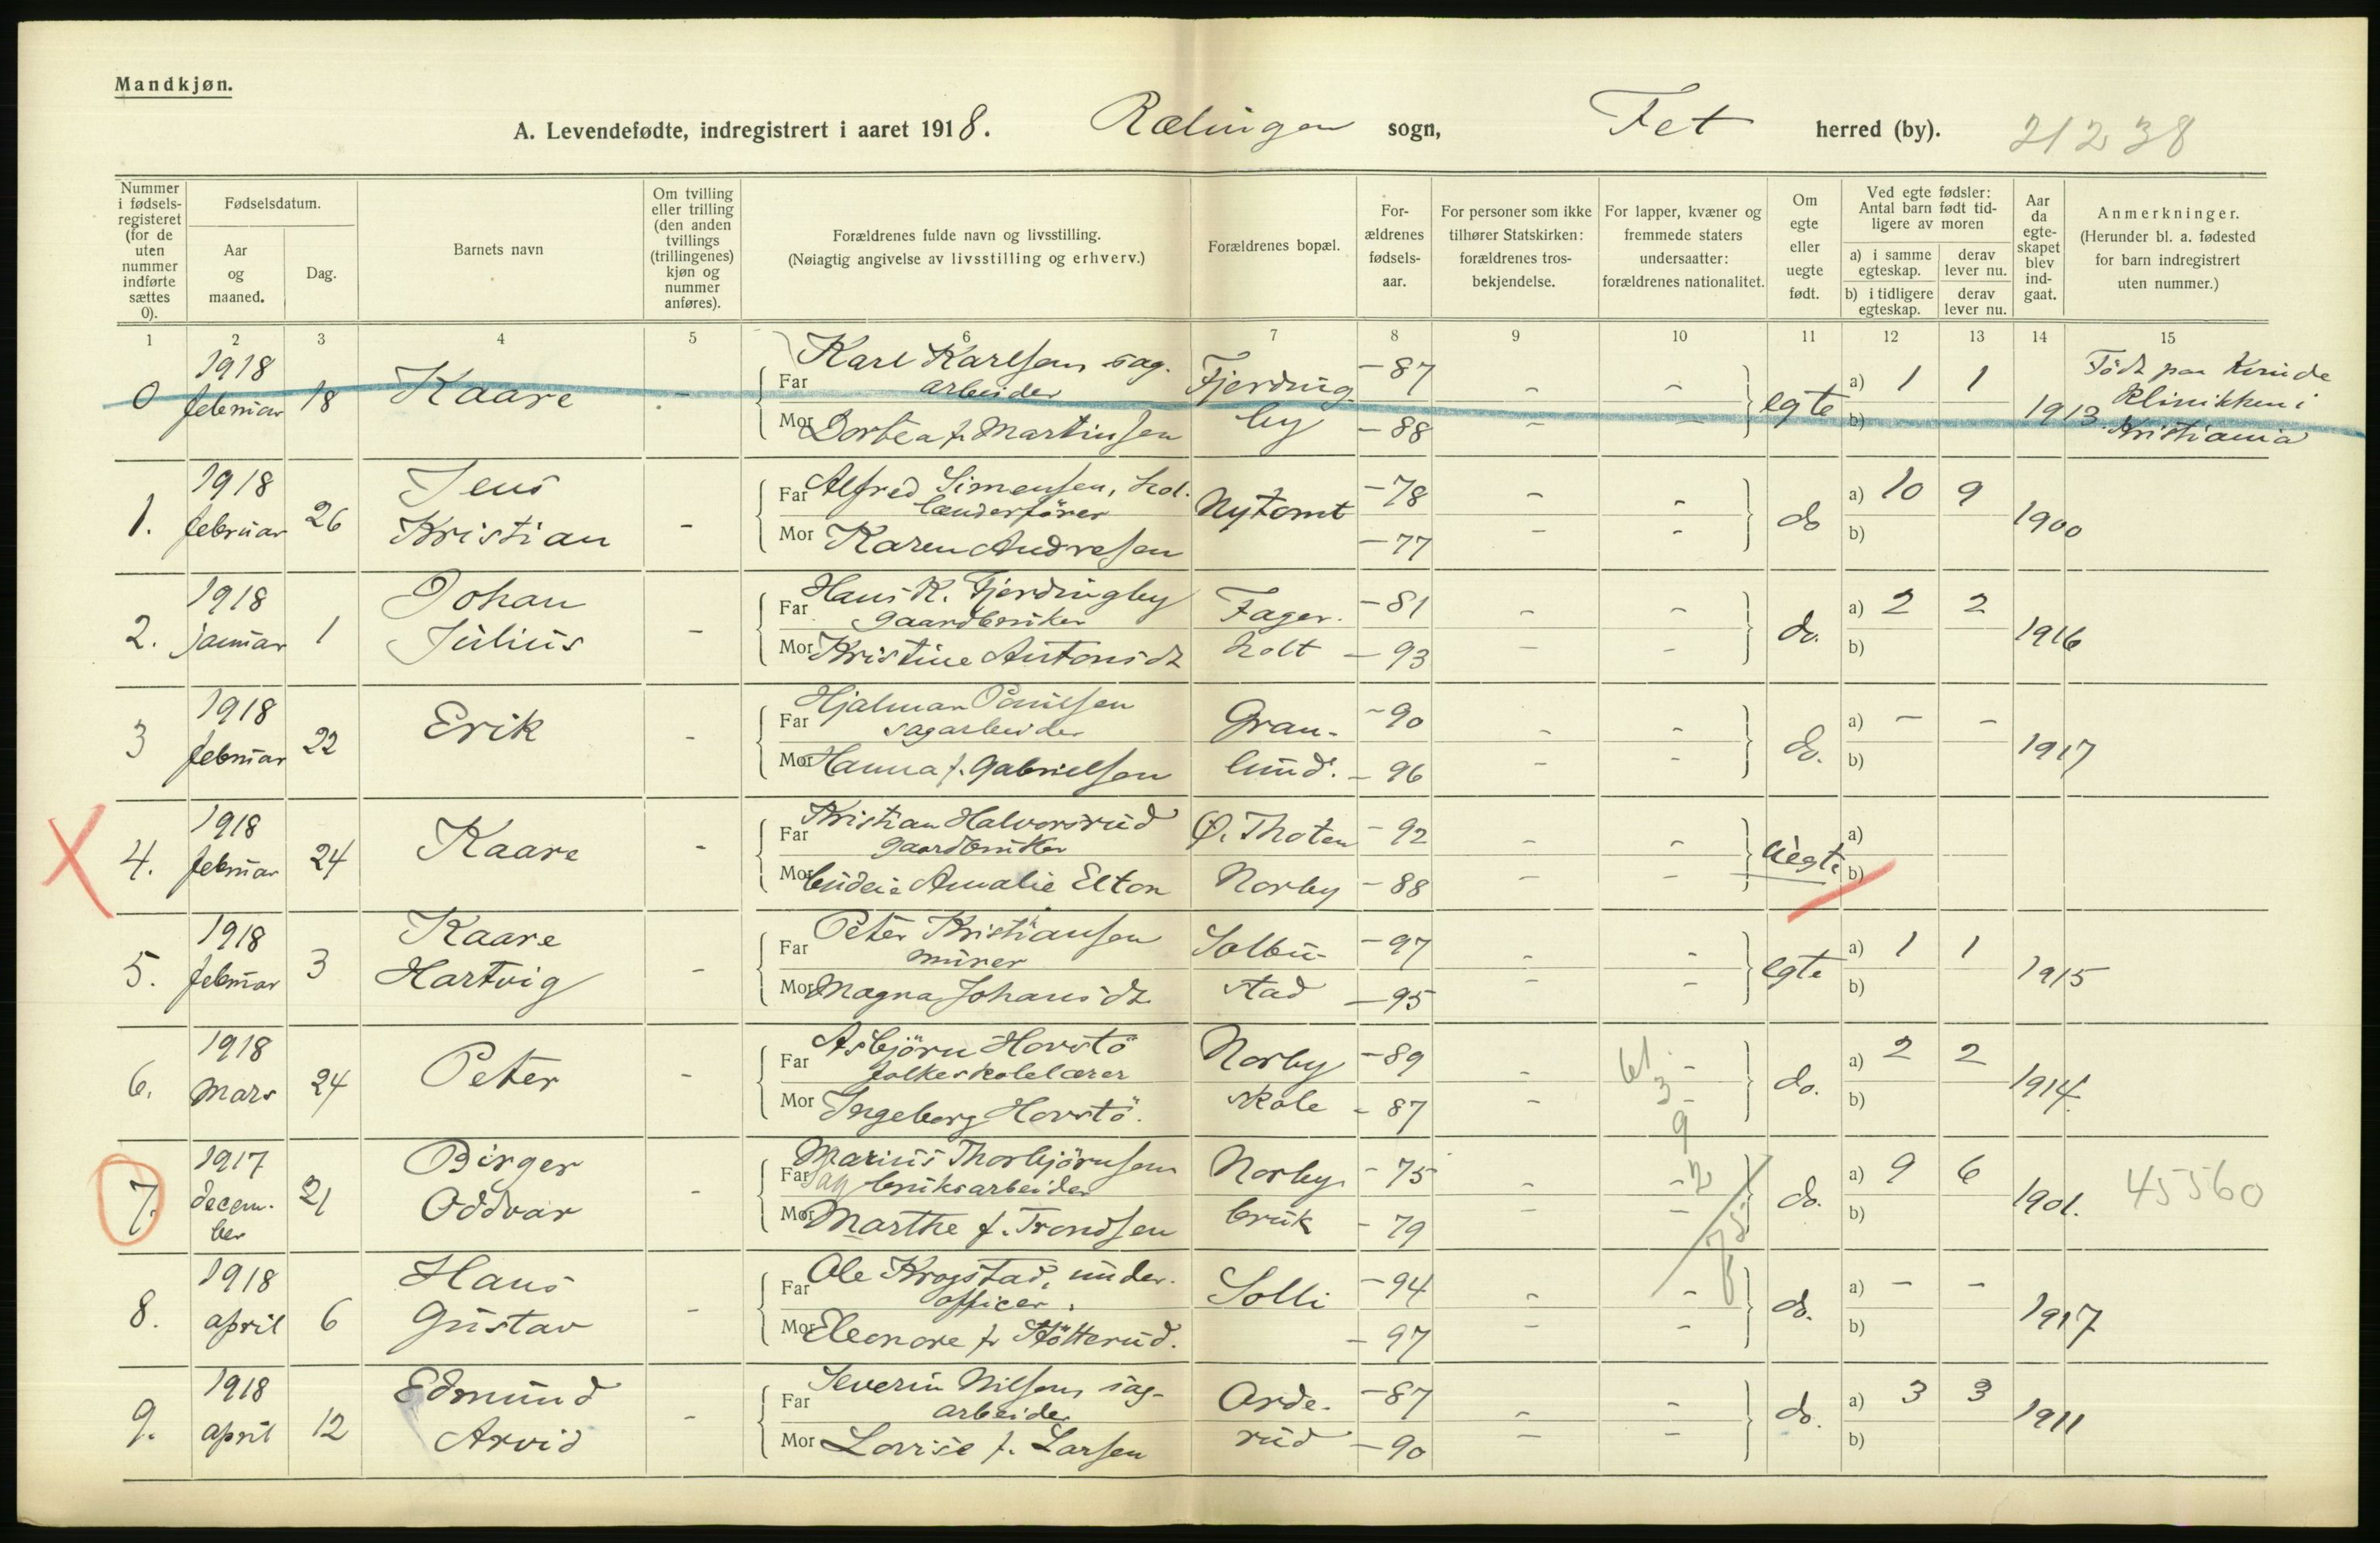 Mandkjøn.
A. Levendefødte, indregistrert i aaret 1918. Rælingen sogn, Fet herred (by). 21238
Nummer i fødsels-registeret (for de uten nummer indførte sættes 0).
Fødselsdatum.
Aar og maaned.
Dag.
Barnets navn
Om tvilling eller trilling (den anden tvillings (trillingenes) kjøn og nummer anføres).
Forældrenes fulde navn og livsstilling.
(Nøiagtig angivelse av livsstilling og erhverv.)
Forældrenes bopæl.
For-ældrenes fødsels-aar.
For personer som ikke tilhører Statskirken: forældrenes tros-bekjendelse.
For lapper, kvæner og fremmede staters undersaatter: forældrenes nationalitet.
Om egte eller uegte født.
Ved egte fødsler: Antal barn født tid-ligere av moren
a) i samme egteskap. derav lever nu.
b) i tidligere egteskap. derav lever nu.
Aar da egte-skapet blev ind-gaat.
Anmerkninger.
(Herunder bl. a. fødested for barn indregistrert uten nummer.)
1 2 3 4 5 6 7 8 9 10 11 12 13 14 15
0 1918 februar 18 Kaare - Far Karl Karlsen sag-arbeider Fjerding- -87 - - egte a) 1 1 1913 Född paa Kvinde
Mor Dortea f. Martinsen by -88 - - b) Klinikken i Kristiania
1. 1918 februar 26 Jens Kristian - Far Alfred Simensen, hol-lænderfører Nytomt -78 - - do a) 10 9 1900
Mor Karen Andresen -77 - - b)
2. 1918 januar 1 Johan Julius - Far Hans K. Fjerdingby gaardbruker Fager- -81 - - do. a) 2 2 1916
Mor Kristine Antonsdt holt -93 - - b)
3 1918 februar 22 Erik - Far Hjalmar Paulsen sagarbeider Gran- -90 - - do. a) - - 1917
Mor Hanna f. Gabrielsen lund. -96 - - b)
4. 1918 februar 24 Kaare - Far Kristian Halvorsrud gaardbruker Ø. Thoten -92 - - uegte a)
Mor Amalie Elton Norby -88 - - b)
5. 1918 februar 3 Kaare Hartvig - Far Peter Kristiansen murer Solbu- -97 - - egte a) 1 1 1915
Mor Magna Johansdt stad -95 - - b)
6. 1918 Mars 24 Peter - Far Asbjörn Hovstö folkeskolelærer Norby -89 - - do. a) 2 2 1914
Mor Ingeborg Hovstö. skole -87 - - b)
7. 1917 decem-ber 21 Birger Oddvar - Far Marius Thorbjörnsen Sagbruksarbeider Norby -75 - - do. a) 9 6 1901. 45560
Mor Marthe f. Trondsen bruk -79 - - b)
8. 1918 april 6 Hans Gustav - Far Ole Krogstad, under-officer. Solli -94 - - do. a) - - 1917
Mor Eleonore f. Støtterud. -97 - - b)
9. 1918 april 12 Edmund Arvid - Far Severin Nilsen, sag-arbeider Arde- -87 - - do. a) 3 3 1911
Mor Lovise f. Larsen rud -90 - - b)